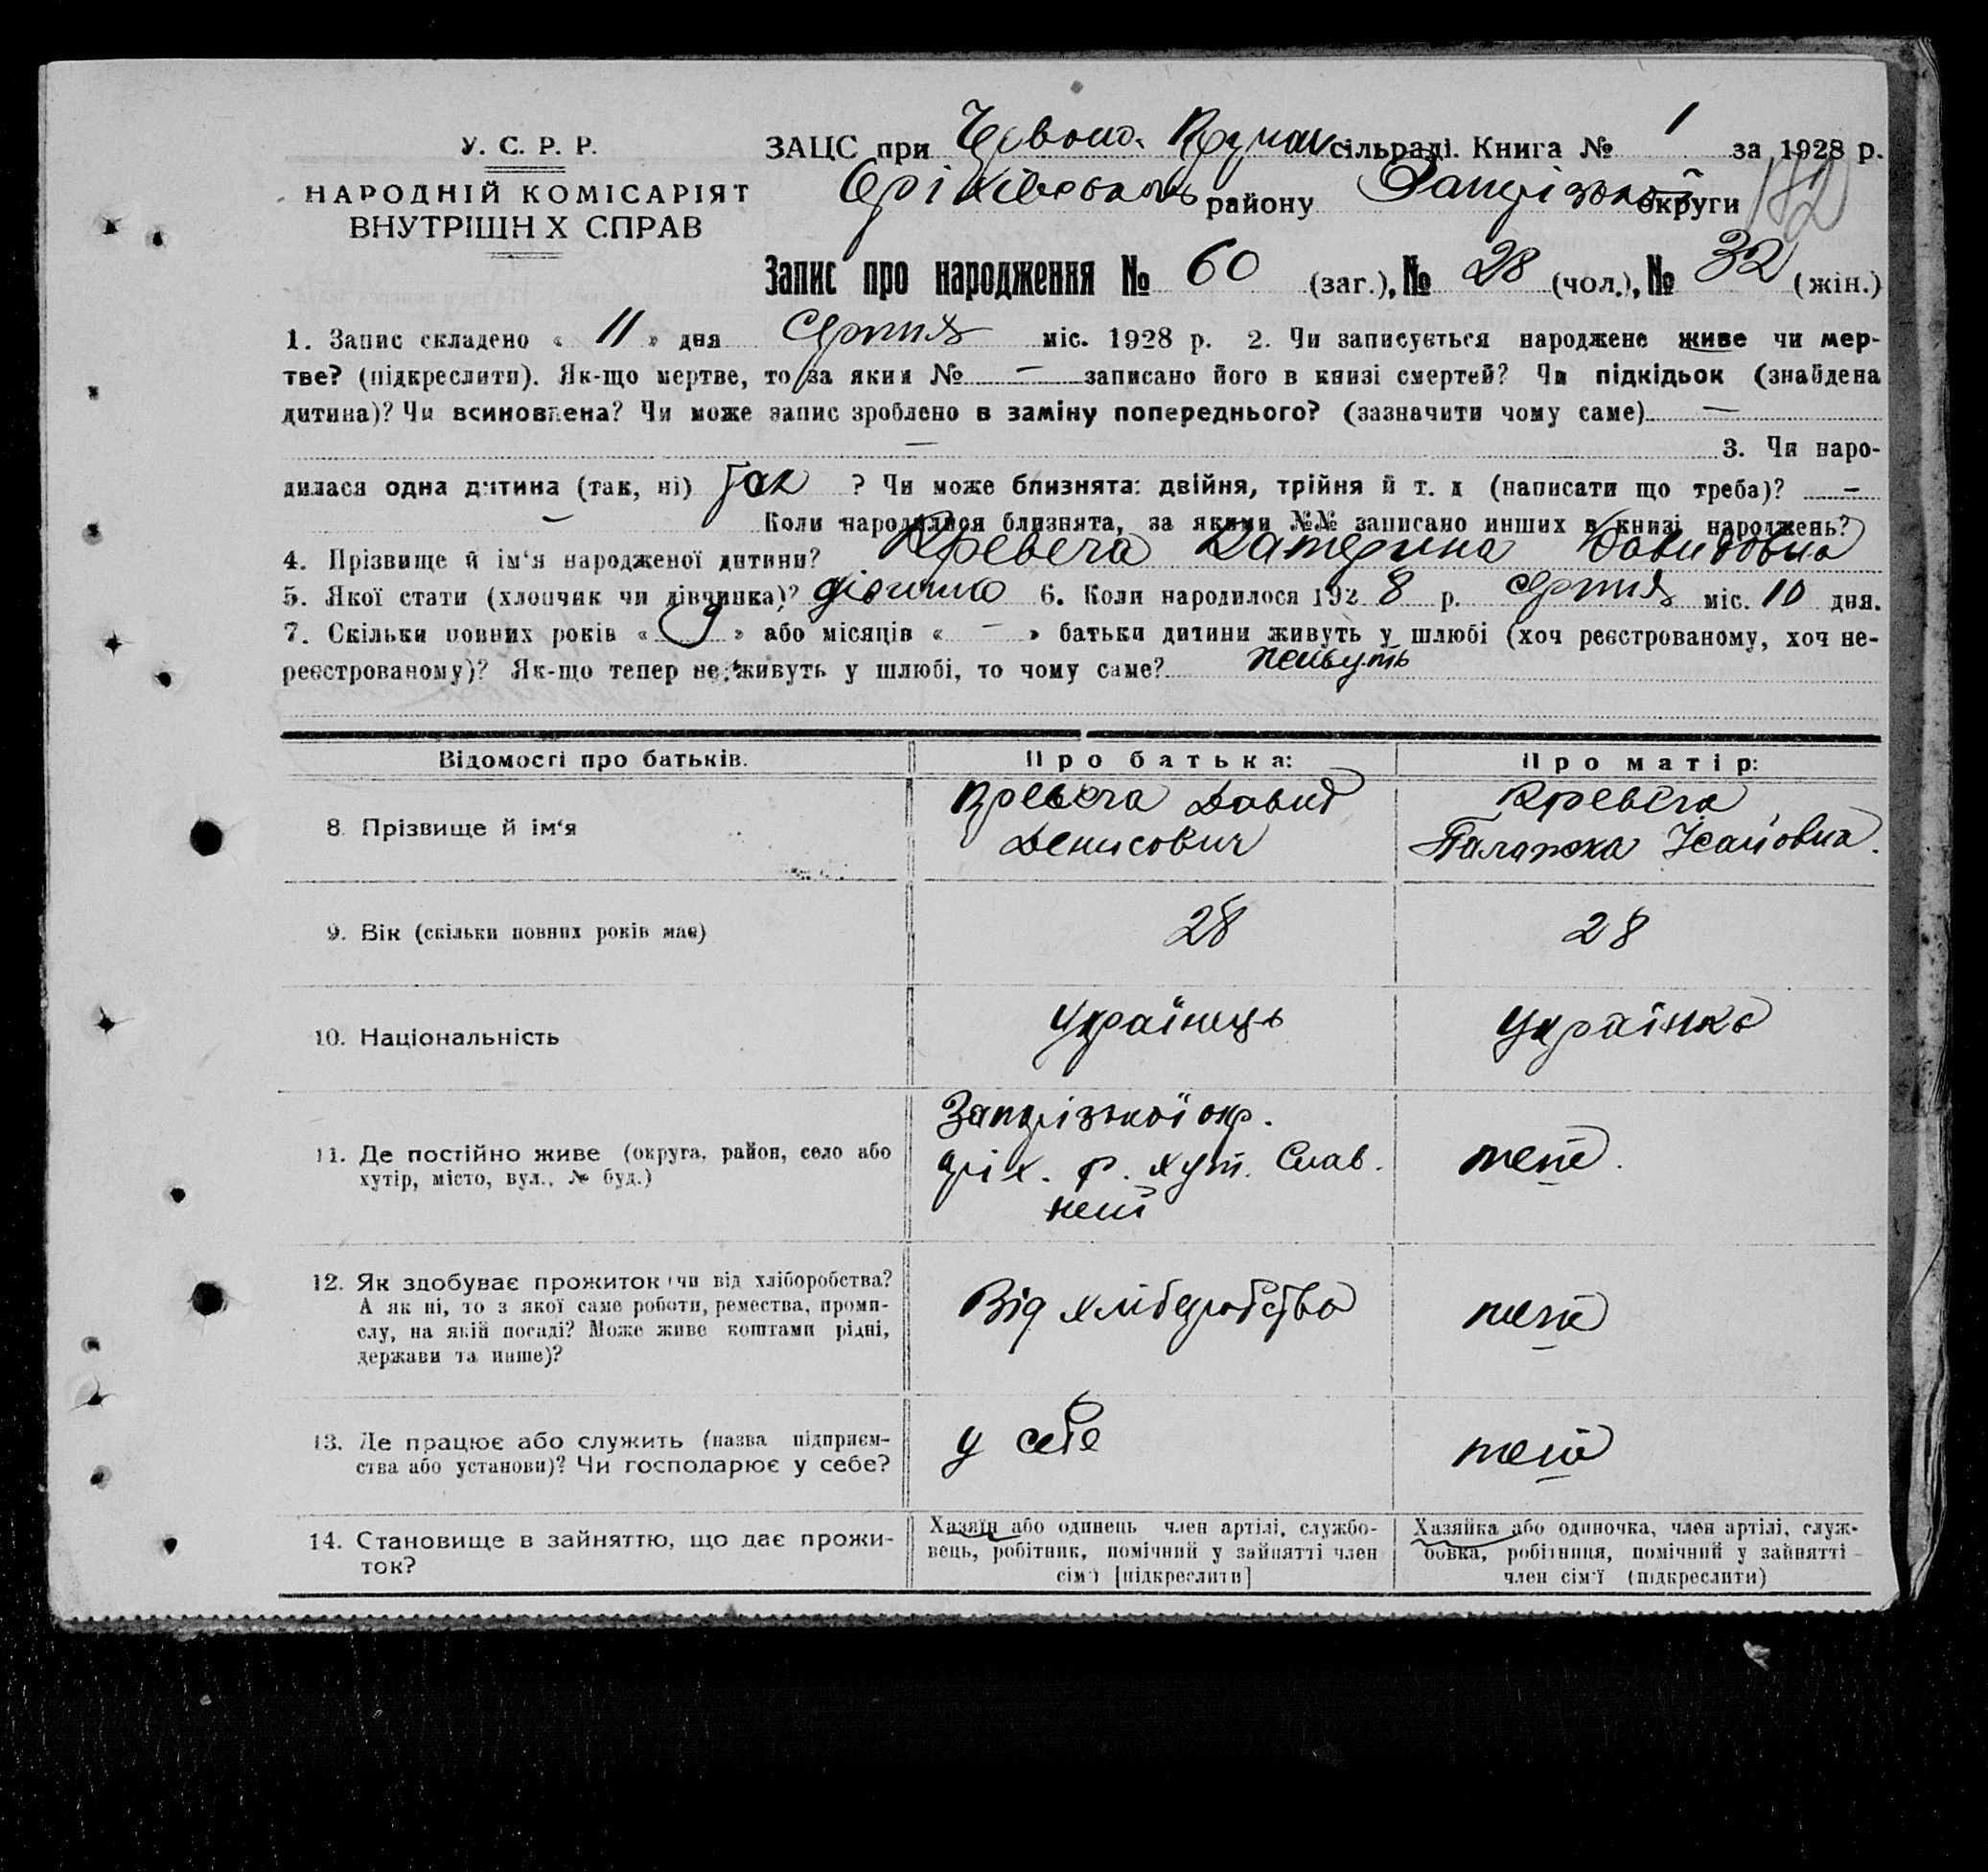 У. С. Р. Р.
НАРОДНІЙ КОМІСАРІЯТ
ВНУТРІШН Х СПРАВ
ЗАЦС при Червоно. сільраді. Книга № 1 за 1928 р.
Оріхівськ району Запорізької округи 182
Запис про народження № 60 (заг.), № 28 (чол.), № 32 (жін.)
1. Запис складено « 11 » дня Серпня міс. 1928 р. 2. Чи записується народжене живе чи мер-
тве? (підкреслити). Як-що мертве, то за яким № — записано його в книзі смертей? Чи підкідьок (знайдена
дитина)? Чи всиновлена? Чи може запис зроблено в заміну попереднього? (зазначити чому саме) —
— 3. Чи наро-
дилася одна дитина (так, ні) Так ? Чи може близнята: двійня, трійня й т. д (написати що треба)? —
— Коли народилися близнята, за якими №№ записано инших в книзі народжень?
4. Прізвище й ім'я народженої дитини? Кревега Катерина Давидовна
5. Якої стати (хлопчик чи дівчинка)? дівчина 6. Коли народилося 1928 р. серпня міс. 10 дня.
7. Скільки повних років « 9 » або місяців « — » батьки дитини живуть у шлюбі (хоч реєстрованому, хоч не-
реєстрованому)? Як-що тепер не живуть у шлюбі, то чому саме?
Відомості про батьків.
Про батька:
Про матір:
8. Прізвище й ім'я
Кревега Давид
Денисович
Кревега
Палажка Ісаіовна.
9. Вік (скільки повних років має)
28
28
10. Національність
Українець
Українка
11. Де постійно живе (округа, район, село або
хутір, місто, вул., № буд.)
Запорізької окр.
оріх. р. хут. Слав.
теж.
12. Як здобуває прожиток (чи від хліборобства?
А як ні, то з якої саме роботи, ремества, проми-
слу, на якій посаді? Може живе коштами рідні,
держави та инше)?
Від хліборобства
теж
13. Де працює або служить (назва підприєм-
ства або установи)? Чи господарює у себе?
у себе
теж
14. Становище в зайняттю, що дає прожи-
ток?
Хазяїн або одинець член артілі, службо-
вець, робітник, помічний у зайнятті член
сім'ї [підкреслити]
Хазяйка або одиночка, член артілі, служ-
бовка, робітниця, помічний у зайнятті
член сім'ї (підкреслити)